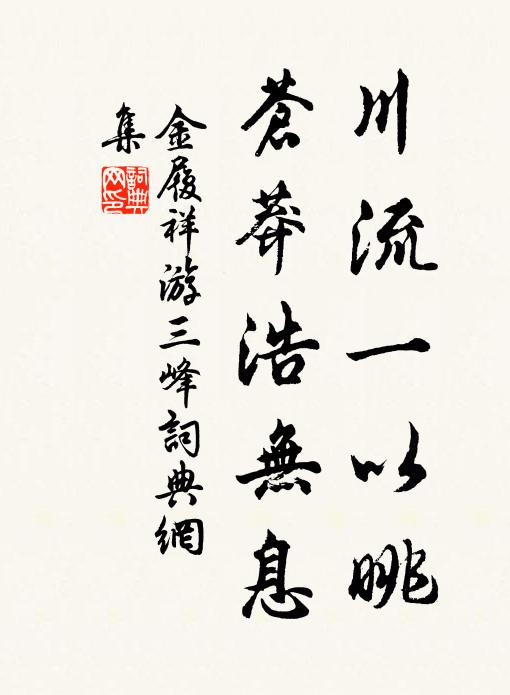 川流一以眺
蒼莽浩無息
金履祥游三峰詞典網
集
詞典
网印